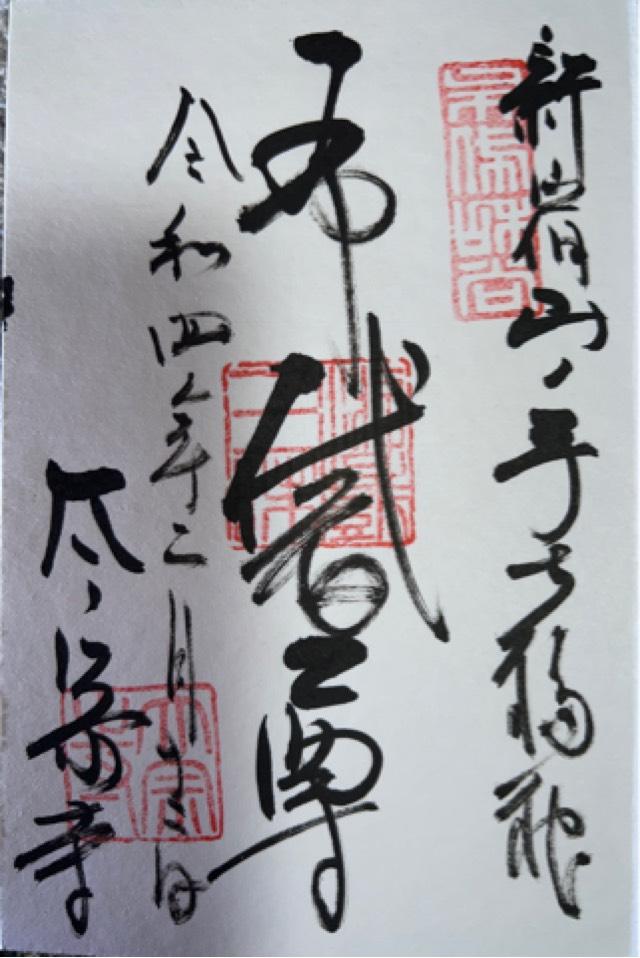 新宿山ノ手七福神
布袋尊
令和四年二月十三日
太宗寺